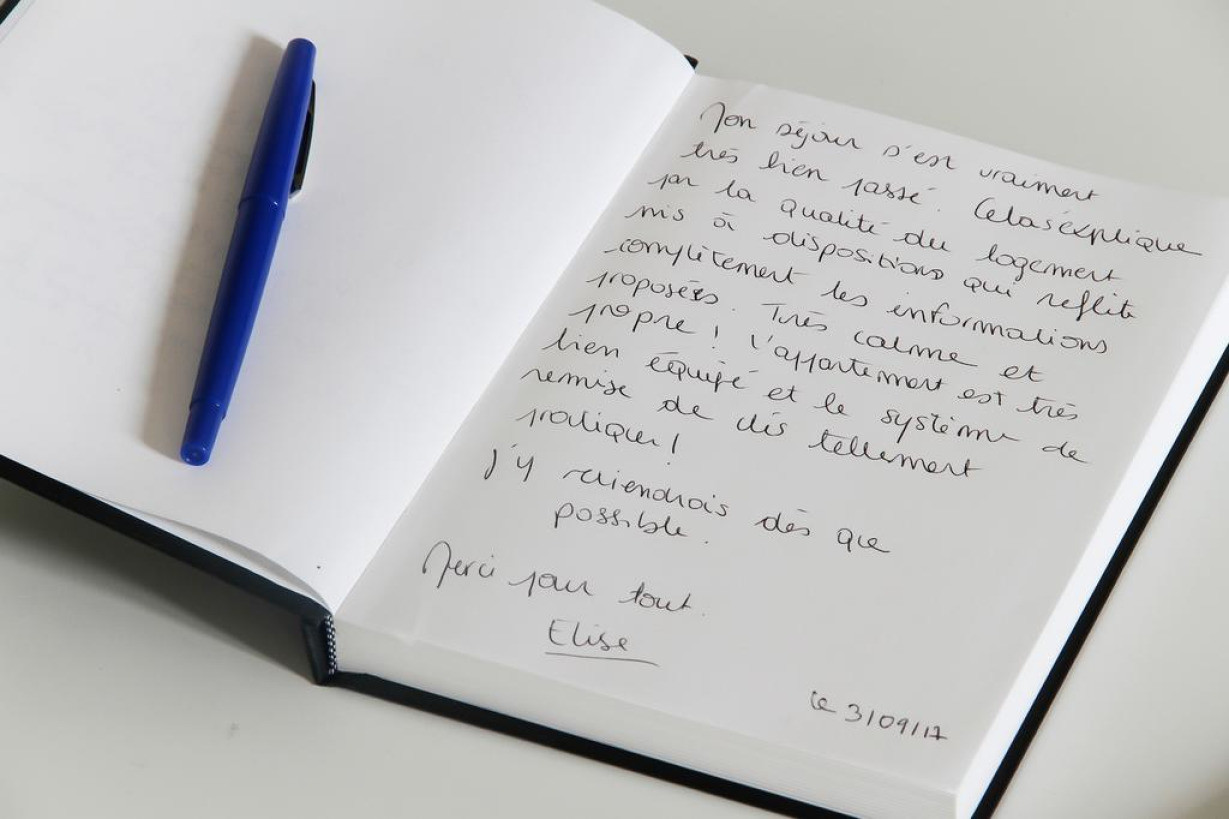 Mon séjour s'est vraiment
très bien passé. Cela s'explique
par la qualité du logement
mis à dispositions qui reflite
complètement les informations
proposées. Très calme et
propre ! L'appartement est très
bien équipé et le système de
remise de clés tellement
pratique !
J'y reviendrais dès que
possible.
Merci pour tout.
Elise
Le 3/09/17